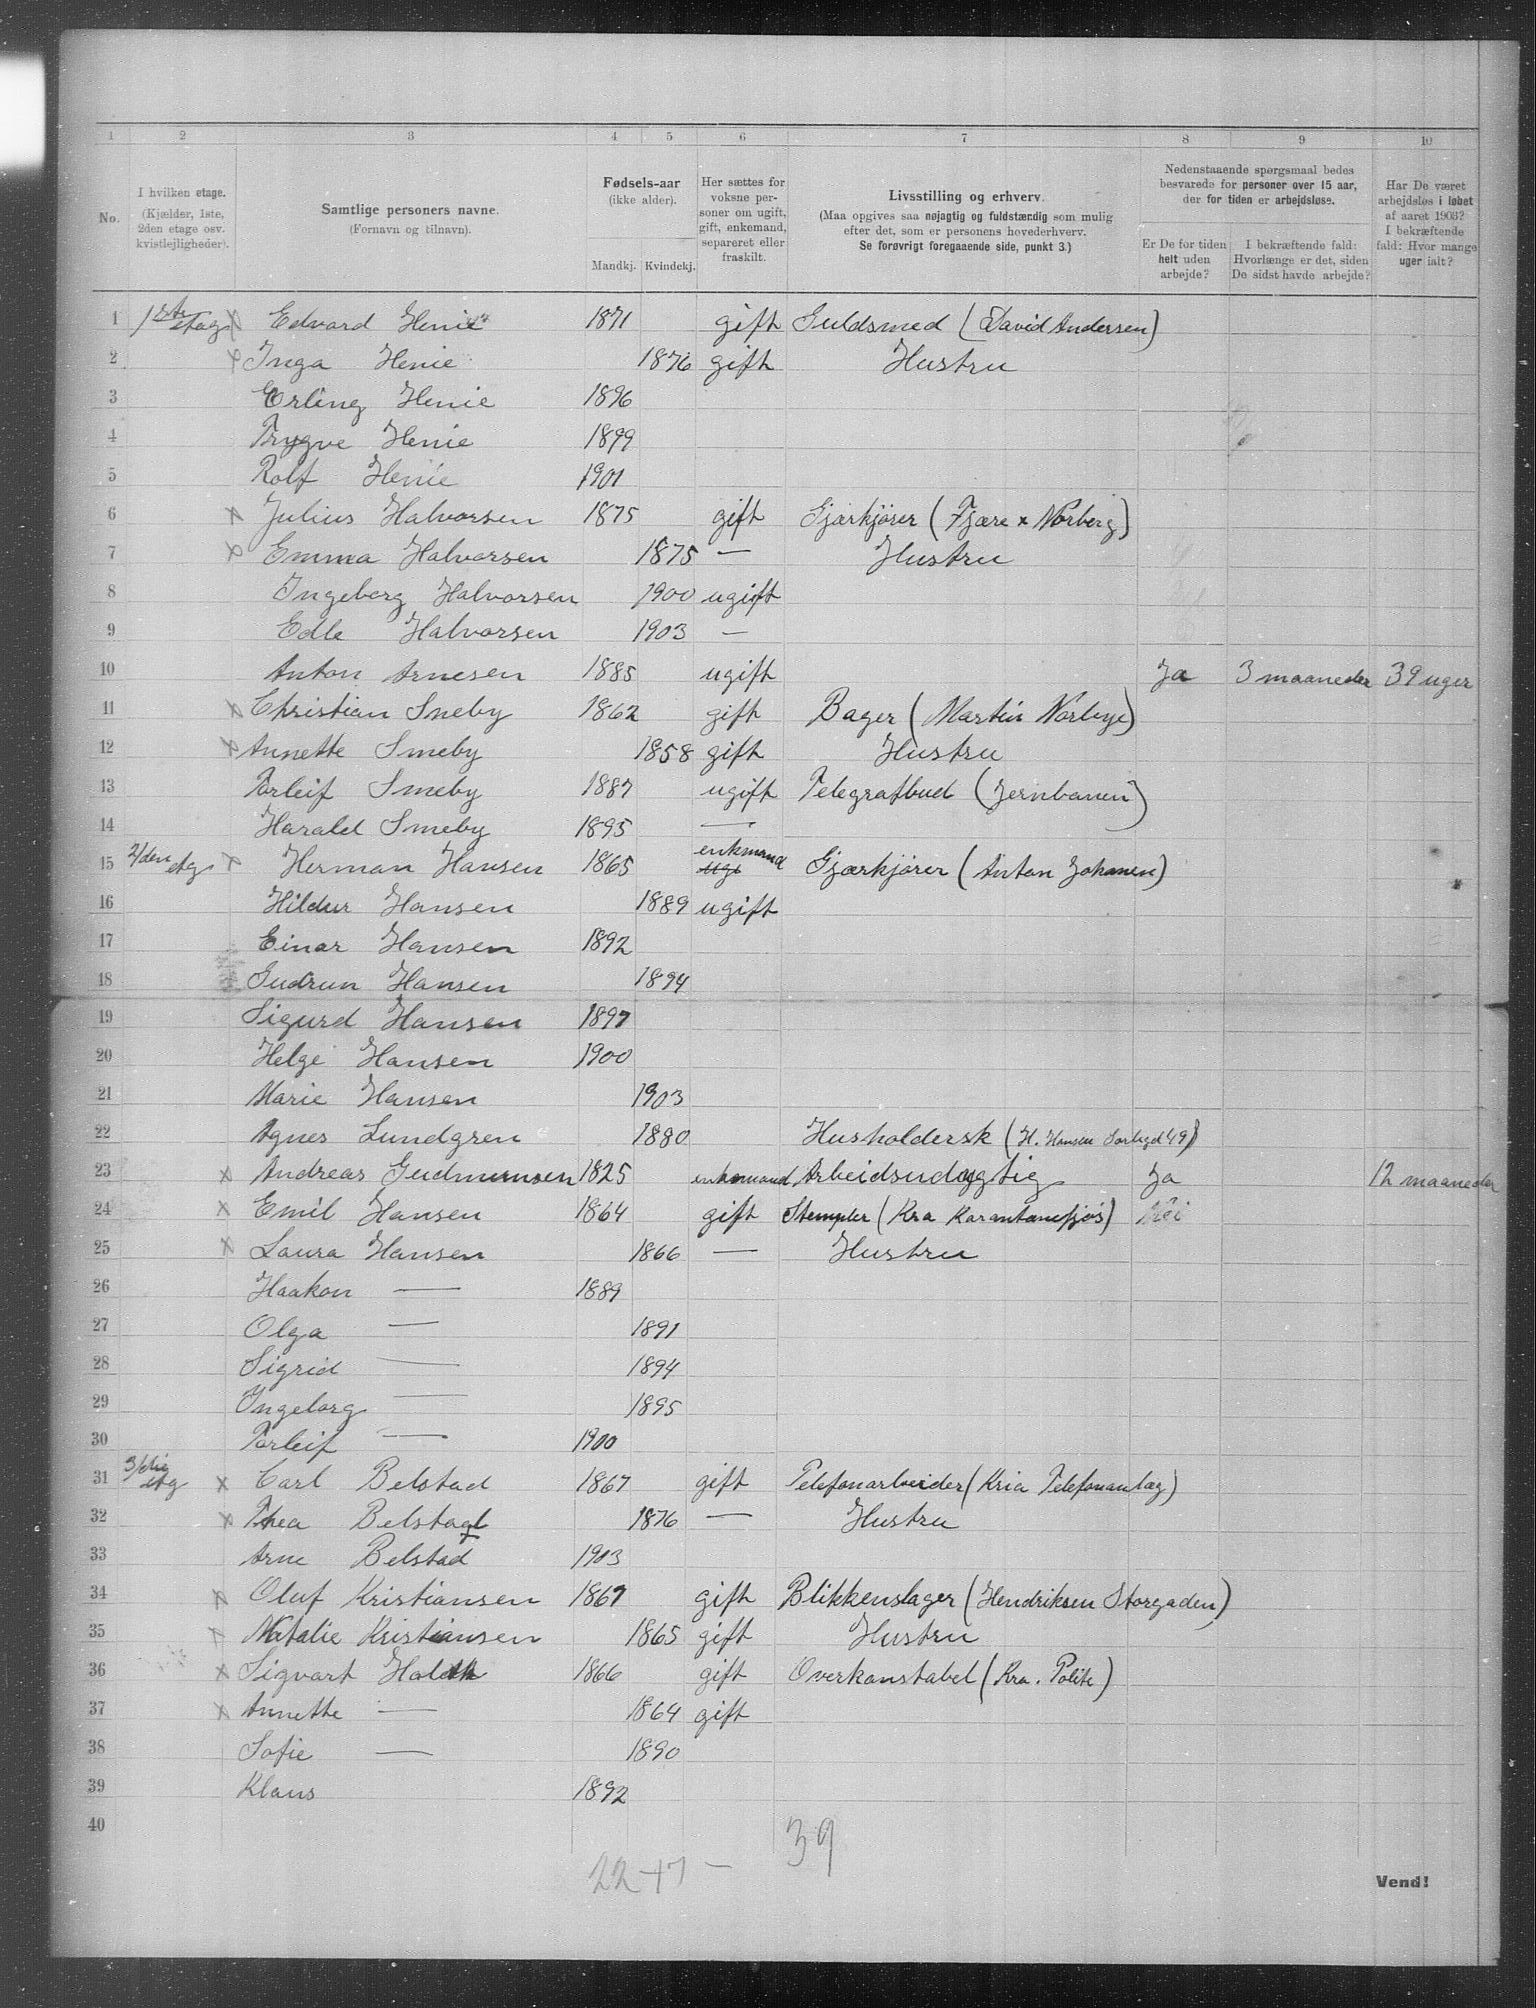 1 2 3 4 5 6 7 8 9 10
No.
I hvilken etage.
(Kjælder, 1ste,
2den etage osv.
kvistlejligheder).
Samtlige personers navne.
(Fornavn og tilnavn).
Fødsels-aar
(ikke alder).
Mandkj. Kvindekj.
Her sættes for
voksne per-
soner om ugift,
gift, enkemand,
separeret eller
fraskilt.
Livsstilling og erhverv.
(Maa opgives saa nøjagtig og fuldstændig som mulig
efter det, som er personens hovederhverv.
Se forøvrigt foregaaende side, punkt 3.)
Nedenstaaende spørgsmaal bedes
besvarede for personer over 15 aar,
der for tiden er arbejdsløse.
Er De for tiden
helt uden
arbejde?
I bekræftende fald:
Hvorlænge er det, siden
De sidst havde arbejde?
Har De været
arbejdsløs i løbet
af aaret 1903?
I bekræftende
fald: Hvor mange
uger ialt?
1 1ste etage x Edvard Henie 1871 gift Guldsmed (David Andersen)
2 x Inga Henie 1876 gift Hustru
3 Erling Henie 1896
4 Trygve Henie 1899
5 Rolf Henie 1901
6 x Julius Halvorsen 1875 gift Gjærkjører (Fjære x Norberg)
7 x Emma Halvorsen 1875 — Hustru
8 Ingeborg Halvorsen 1900 ugift
9 Edle Halvorsen 1903 —
10 Anton Arnesen 1885 ugift Ja 3 maaneder 39 uger
11 x Christian Smeby 1862 gift Bager (Martin Norbye)
12 x Annette Smeby 1858 gift Hustru
13 Torleif Smeby 1887 ugift Telegrafbud (Jernbanen)
14 Harald Smeby 1895 —
15 2/den etg x Herman Hansen 1865 enkmand Gjærkjører (Anton Johansen)
16 Hildur Hansen 1889 ugift
17 Einar Hansen 1892
18 Gudrun Hansen 1894
19 Sigurd Hansen 1897
20 Helge Hansen 1900
21 Marie Hansen 1903
22 Agnes Lundgren 1880 Husholdersk (H. Hansen 49)
23 x Andreas Gudmunsen 1825 enkemand Arbeidsudygtig Ja 12 maaneder
24 x Emil Hansen 1864 gift Stempler (Kra Karantænefjøs) Nei
25 x Laura Hansen 1866 — Hustru
26 Haakon — 1889
27 Olga — 1891
28 Sigrid — 1894
29 Ingeborg — 1895
30 Torleif — 1900
31 3/die etg x Carl Belstad 1867 gift Telefonarbeider (Kria Telefonanlæg)
32 x Thea Belstad 1876 — Hustru
33 Arne Belstad 1903
34 x Oluf Kristiansen 1867 gift Blikkenslager (Hendriksen Storgaden)
35 x Natalie Kristiansen 1865 gift Hustru
36 x Sigvart Holth 1866 gift Overkonstabel (Kra. Politi)
37 x Annette — 1864 gift
38 Sofie — 1890
39 Klaus 1892
40
22 + 17 — 39
Vend!